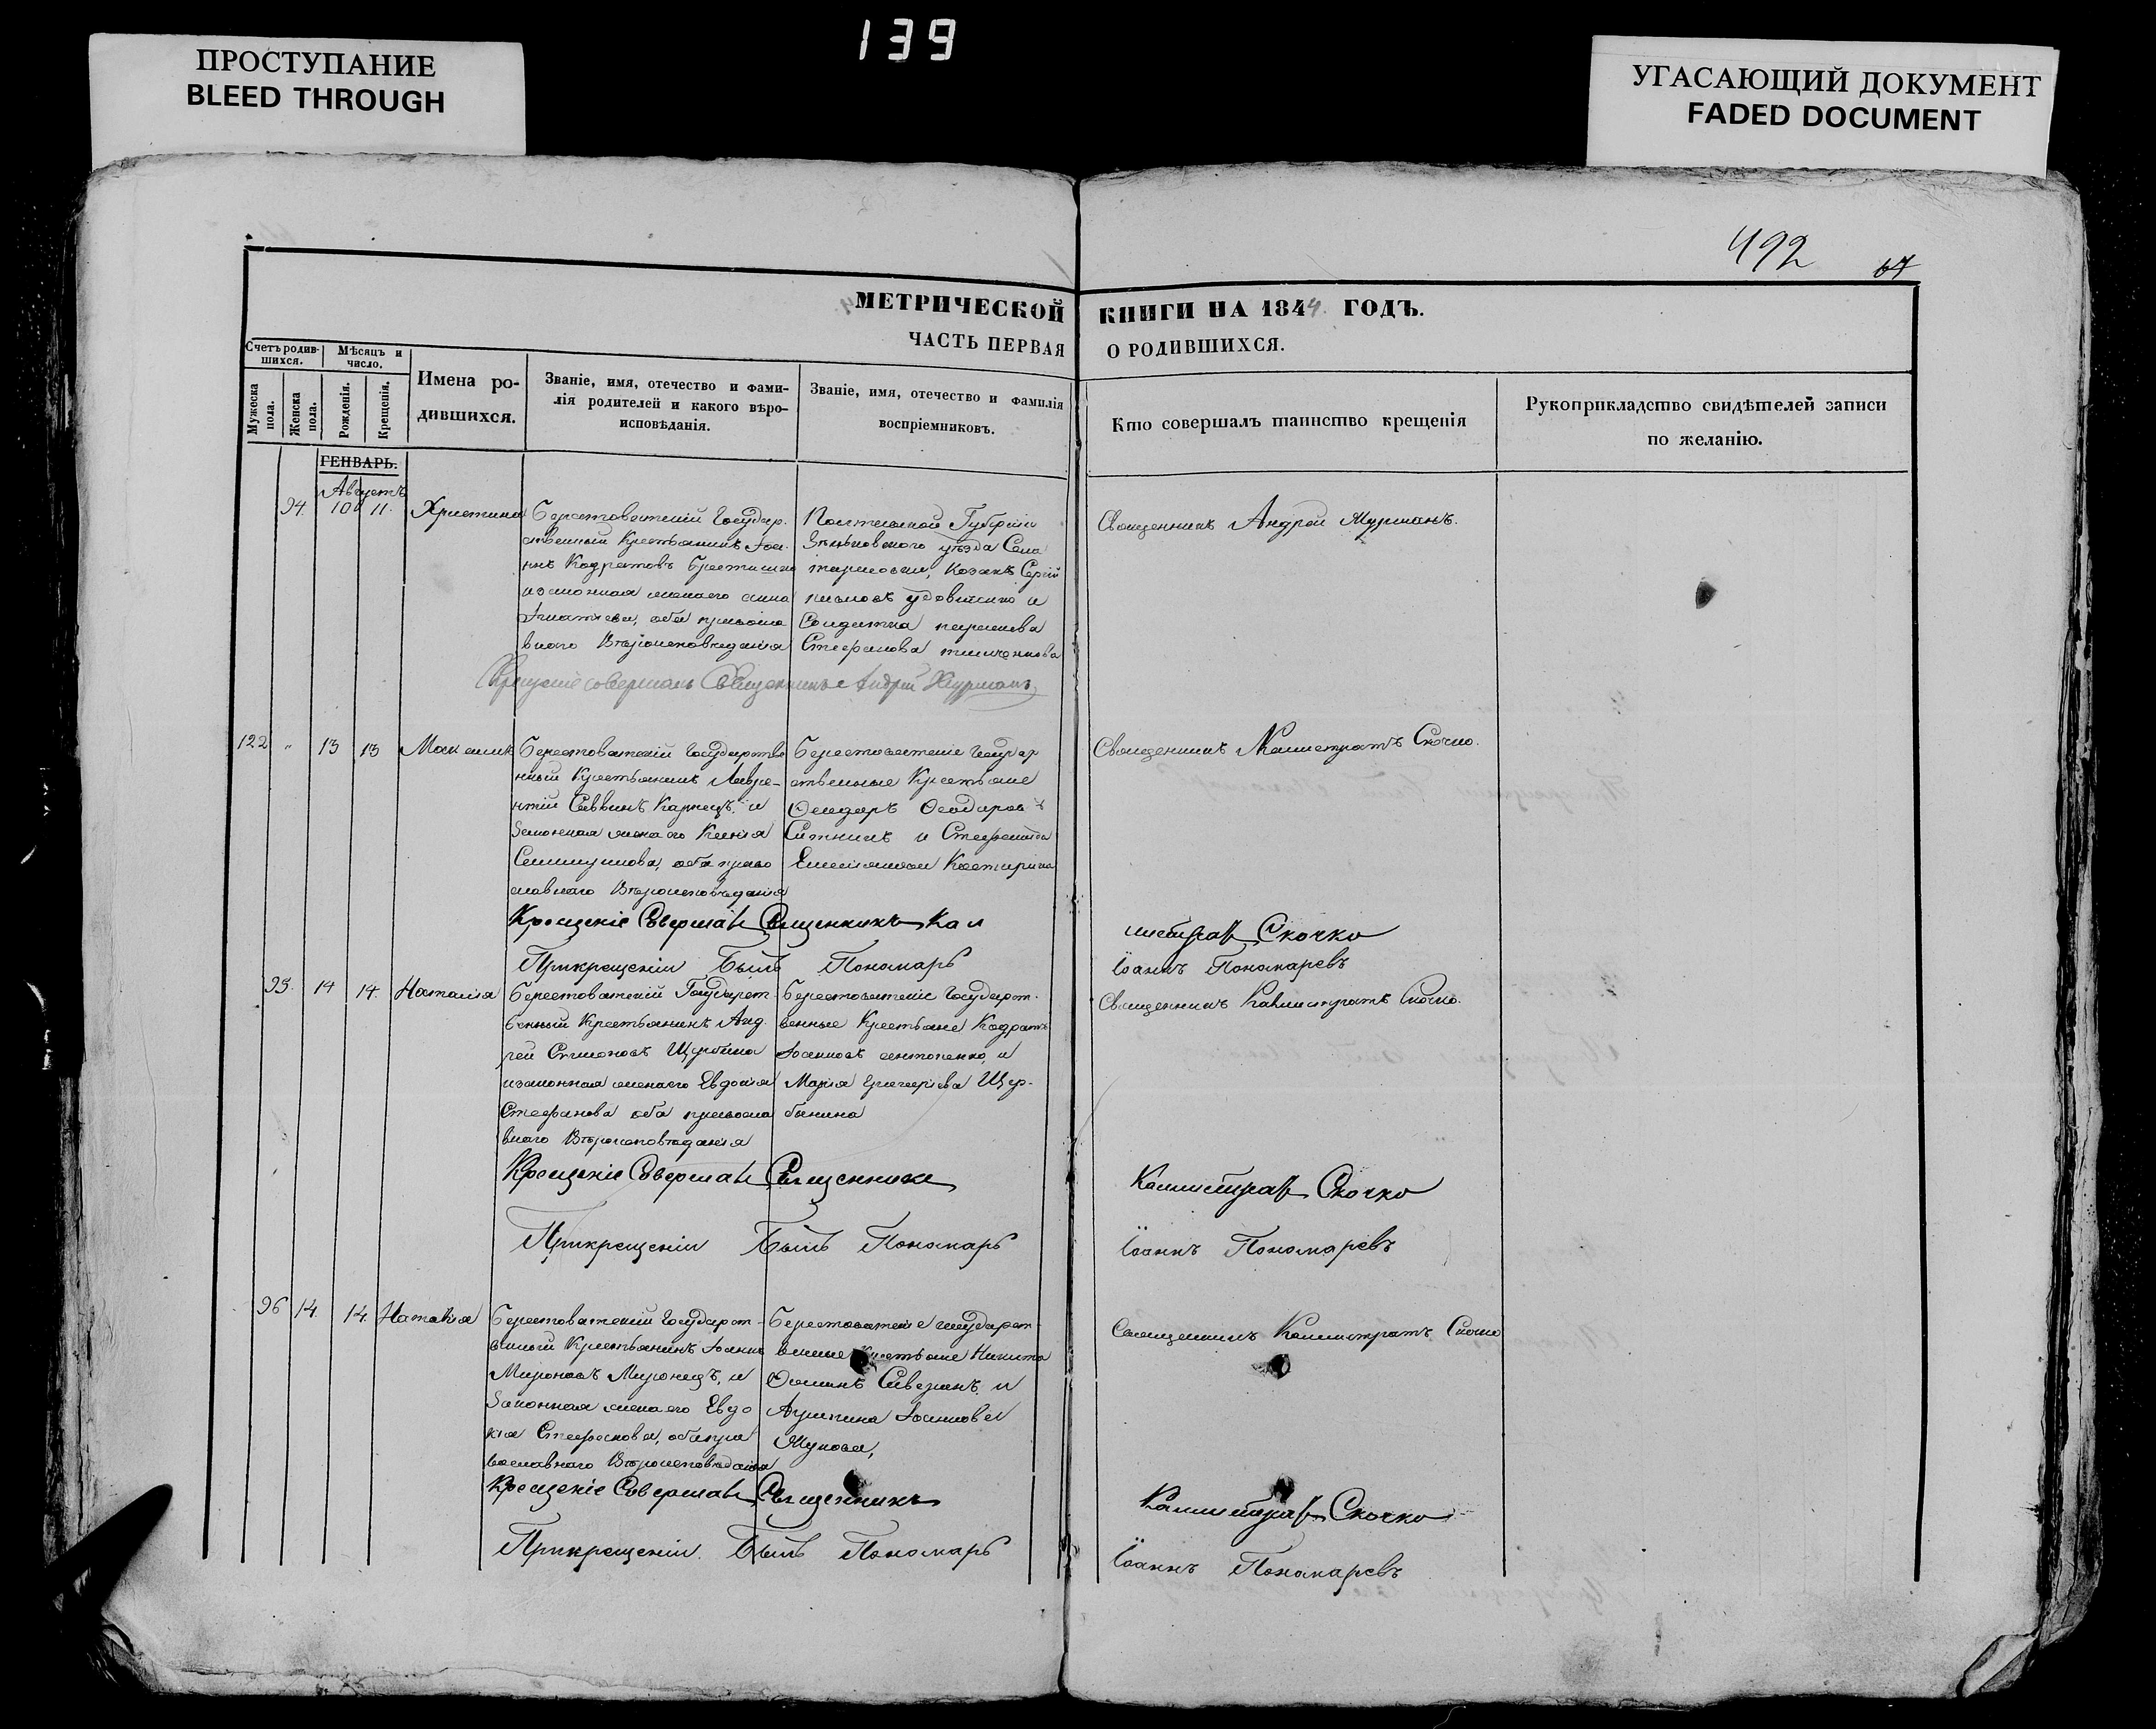 139
ПРОСТУПАНИЕ
BLEED THROUGH
УГАСАЮЩИЙ ДОКУМЕНТ
FADED DOCUMENT
492
67
МЕТРИЧЕСКОЙ КНИГИ НА 1844 ГОДЪ.
ЧАСТЬ ПЕРВАЯ О РОДИВШИХСЯ.
Счетъ родив-
шихся.
Мужеска
пола.
Женска
пола.
Мѣсяцъ и
число.
Рожденія.
Крещенія.
Имена ро-
дившихся.
Званіе, имя, отечество и фами-
лія родителей и какого вѣро-
исповѣданія.
Званіе, имя, отечество и фамилія
воспріемниковъ.
Кто совершалъ таинство крещенія
Рукоприкладство свидѣтелей записи
по желанію.
ГЕНВАРЬ.
Августъ
94. 10 11. Христина
Берестоватскій Государ-
ственный Крестьянинъ Іоа-
ннъ Кодратовъ
изаконная женаего Анна
оба правосла
внаго Вѣроисповѣданія
Полтавской Губерніи
Зѣньковского уѣзда Села
Козакъ Сергій
и
Солдатка
Стефанова
Священникъ Андрей
Крещеніе совершалъ Священникъ Андрей
122 " 13 13
Берестоватскій Государстве
нный Крестьянинъ Лавре-
нтій Саввинъ и
Законная жена его Ксенія
оба право
славнаго Вѣроисповѣданія
Берестоватскіе Государ
ственные Крестьяне
Ѳеодоръ Ѳеодоровъ
Ситникъ и Стефанида
Емеліянова
Священникъ Калистратъ Скочко.
Крещеніе Совершалъ Священникъ Кал
листратъ Скочко
Прикрещеніи Былъ Пономарь
Іоаннъ Пономаревъ
95. 14 14. Наталія
Берестоватскій Государст-
венный Крестьянинъ Анд-
рей Симоновъ Щербина
изаконная женаего Евдокія
Стефанова оба правосла
внаго Вѣроисповѣданія
Берестоватскіе Государст-
венные Крестьяне Кодратъ
Іоанновъ Антоненко, и
Марія Григоріева Щер-
бинина
Священникъ Калистратъ Скочко.
Крещеніе Совершалъ Священникъ
Каллистратъ Скочко
Прикрещеніи Былъ Пономарь
Іоаннъ Пономаревъ
96 14. 14. Наталія
Берестоватскій Государст-
венный Крестьянинъ Іоаннъ
Мироновъ Миронецъ, и
Законная жена его Евдо
кія Стефанова, оба пра
вославнаго Вѣроисповѣданія
Берестоватскіе Государст-
венные Крестьяне Никита
и
Іоаннова
Священникъ Калистратъ Скочко
Крещеніе Совершалъ Священникъ
Каллистратъ Скочко
Прикрещеніи Былъ Пономарь
Іоаннъ Пономаревъ